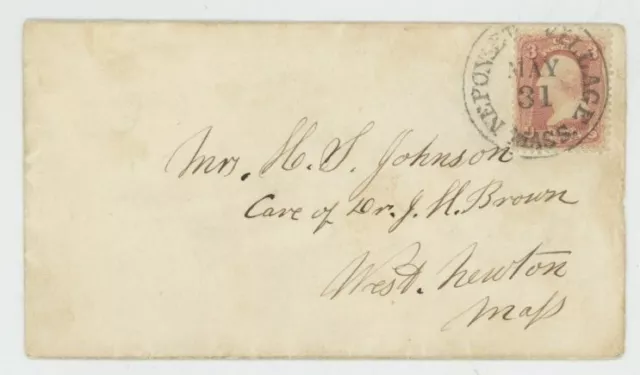 NEPONSET VILLAGE
MASS.
MAY
31
3
Mrs. H. S. Johnson
Care of Dr. J. H. Brown
West. Newton
Mass